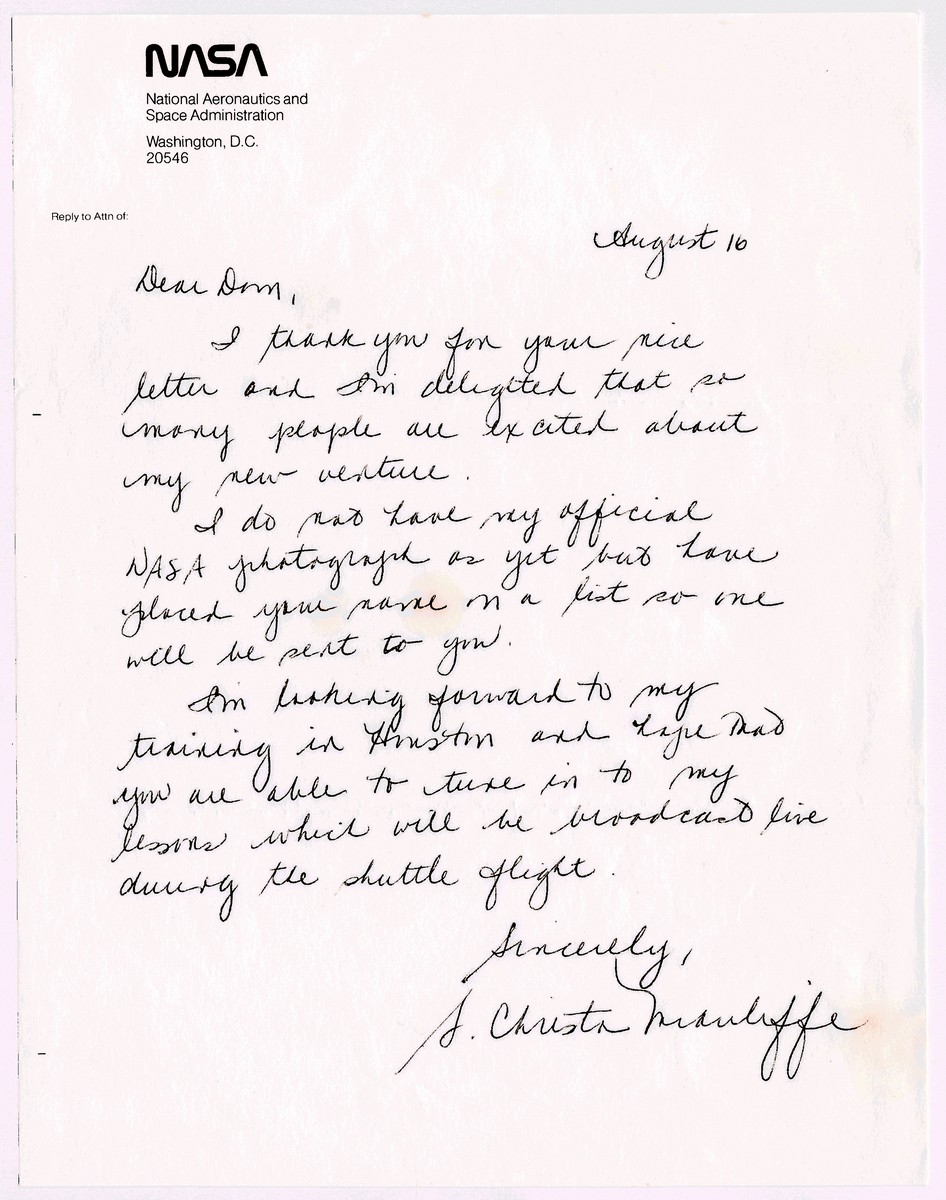 NASA
National Aeronautics and
Space Administration
Washington, D.C.
20546
Reply to Attn of:
August 16
Dear Dom,
I thank you for your nice
letter and I'm delighted that so
many people are excited about
my new venture.
I do not have my official
NASA photograph as yet but have
placed your name on a list so one
will be sent to you.
I'm looking forward to my
training in Houston and hope that
you are able to tune in to my
lessons which will be broadcast live
during the shuttle flight.
Sincerely,
S. Christa McAuliffe